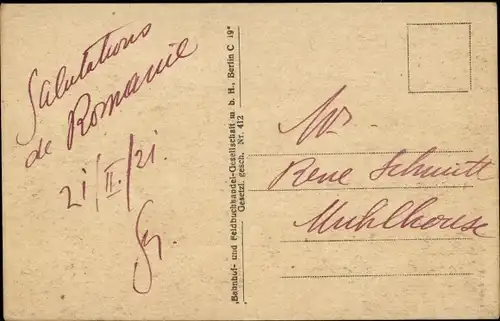 Salutations
de Romanie
21/II./21.
"Bahnhof- und Feldbuchhandel-Gesellschaft m. b. H., Berlin C 19"
Gesetzl. gesch. Nr. 412
Rene Schmitt
Muhlhouse